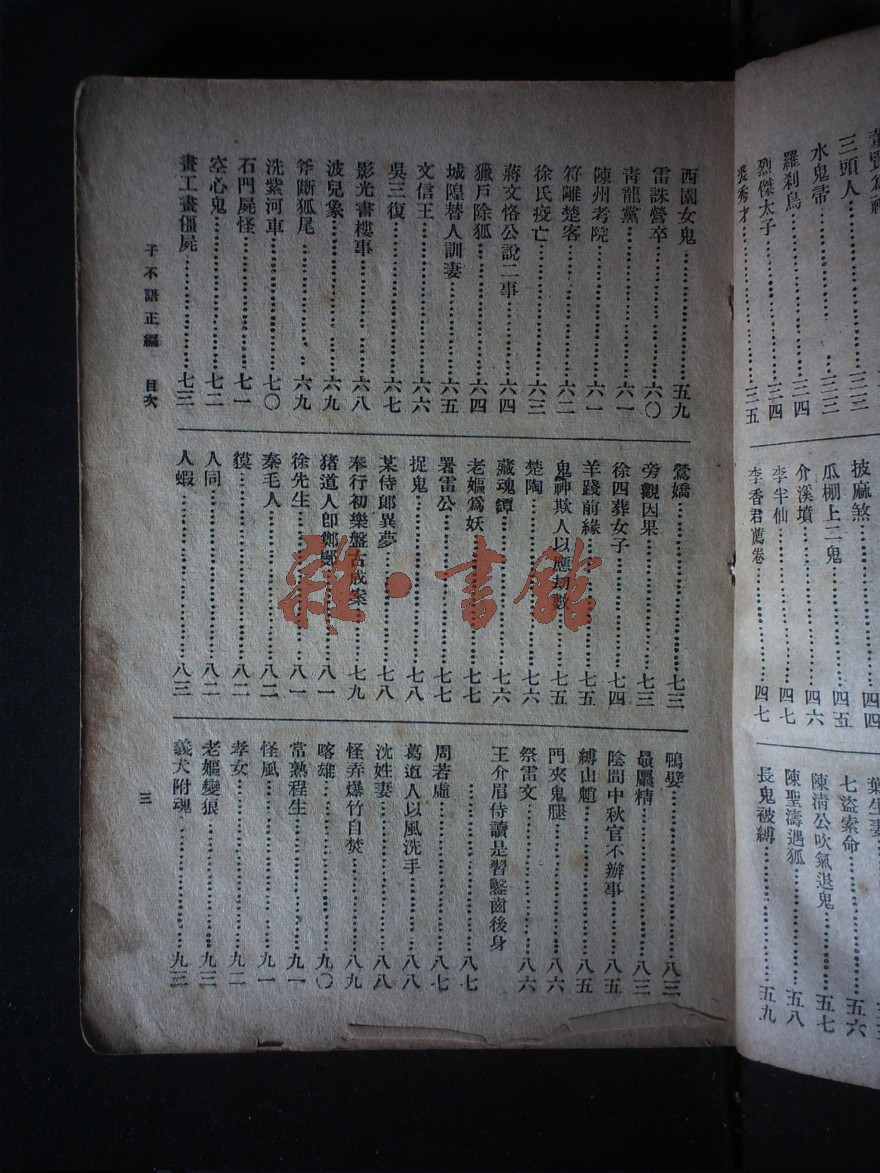 三頭人……三三
水鬼帚……三三
羅刹鳥……三四
烈傑太子……三四
裘秀才……三五
披麻煞……四四
瓜棚上二鬼……四五
介溪墳……四六
李半仙……四七
李香君薦卷……四七
葉生妻
七盜索命……五六
陳清公吹氣退鬼……五七
陳聖濤遇狐……五八
長鬼被縛……五九
西園女鬼……五九
雷誅營卒……六〇
青龍黨……六一
陳州考院……六一
符離楚客……六二
徐氏疫亡……六三
蔣文恪公說二事……六四
獵戶除狐……六四
城隍替人訓妻……六五
文信王……六六
吳三復……六七
影光書樓事……六八
波兒象……六九
斧斷狐尾……六九
洗紫河車……七〇
石門屍怪……七一
空心鬼……七二
畫工畫僵屍……七三
鶯嬌……七三
旁觀因果……七三
徐四葬女子……七四
羊踐前緣……七五
鬼神欺人以應劫數……七五
楚陶……七六
藏魂鐔……七六
老嫗爲妖……七七
署雷公……七七
捉鬼……七八
某侍郎異夢……七八
奉行初樂盤古成案……七九
猪道人卽鄭鄤……八一
徐先生……八一
秦毛人……八二
貘……八二
人同……八二
人蝦……八三
鴨嬖……八三
贔屭精……八三
陰間中秋官不辦事……八五
縛山魈……八五
門夾鬼腿……八六
祭雷文……八六
王介眉侍讀是習鑿齒後身
……八七
周若虛……八七
葛道人以風洗手……八八
沈姓妻……八八
怪弄爆竹自焚……八九
喀雄……九〇
常熟程生……九一
怪風……九一
孝女……九二
老嫗變狼……九三
義犬附魂……九三
子不語正編 目次
三
雜·書館